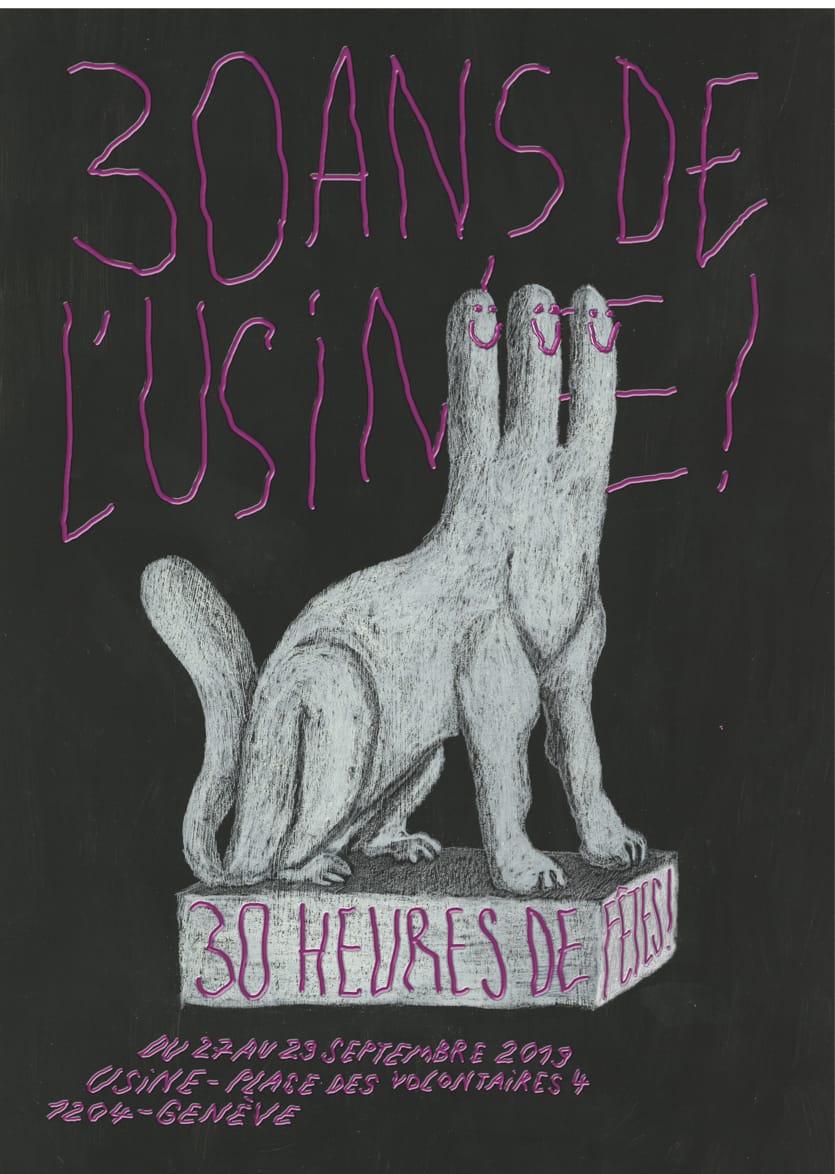 30 ANS DE
L'USINE !
30 HEURES DE FÊTES !
DU 27 AU 29 SEPTEMBRE 2019
USINE - PLACE DES VOLONTAIRES 4
1204 - GENÈVE